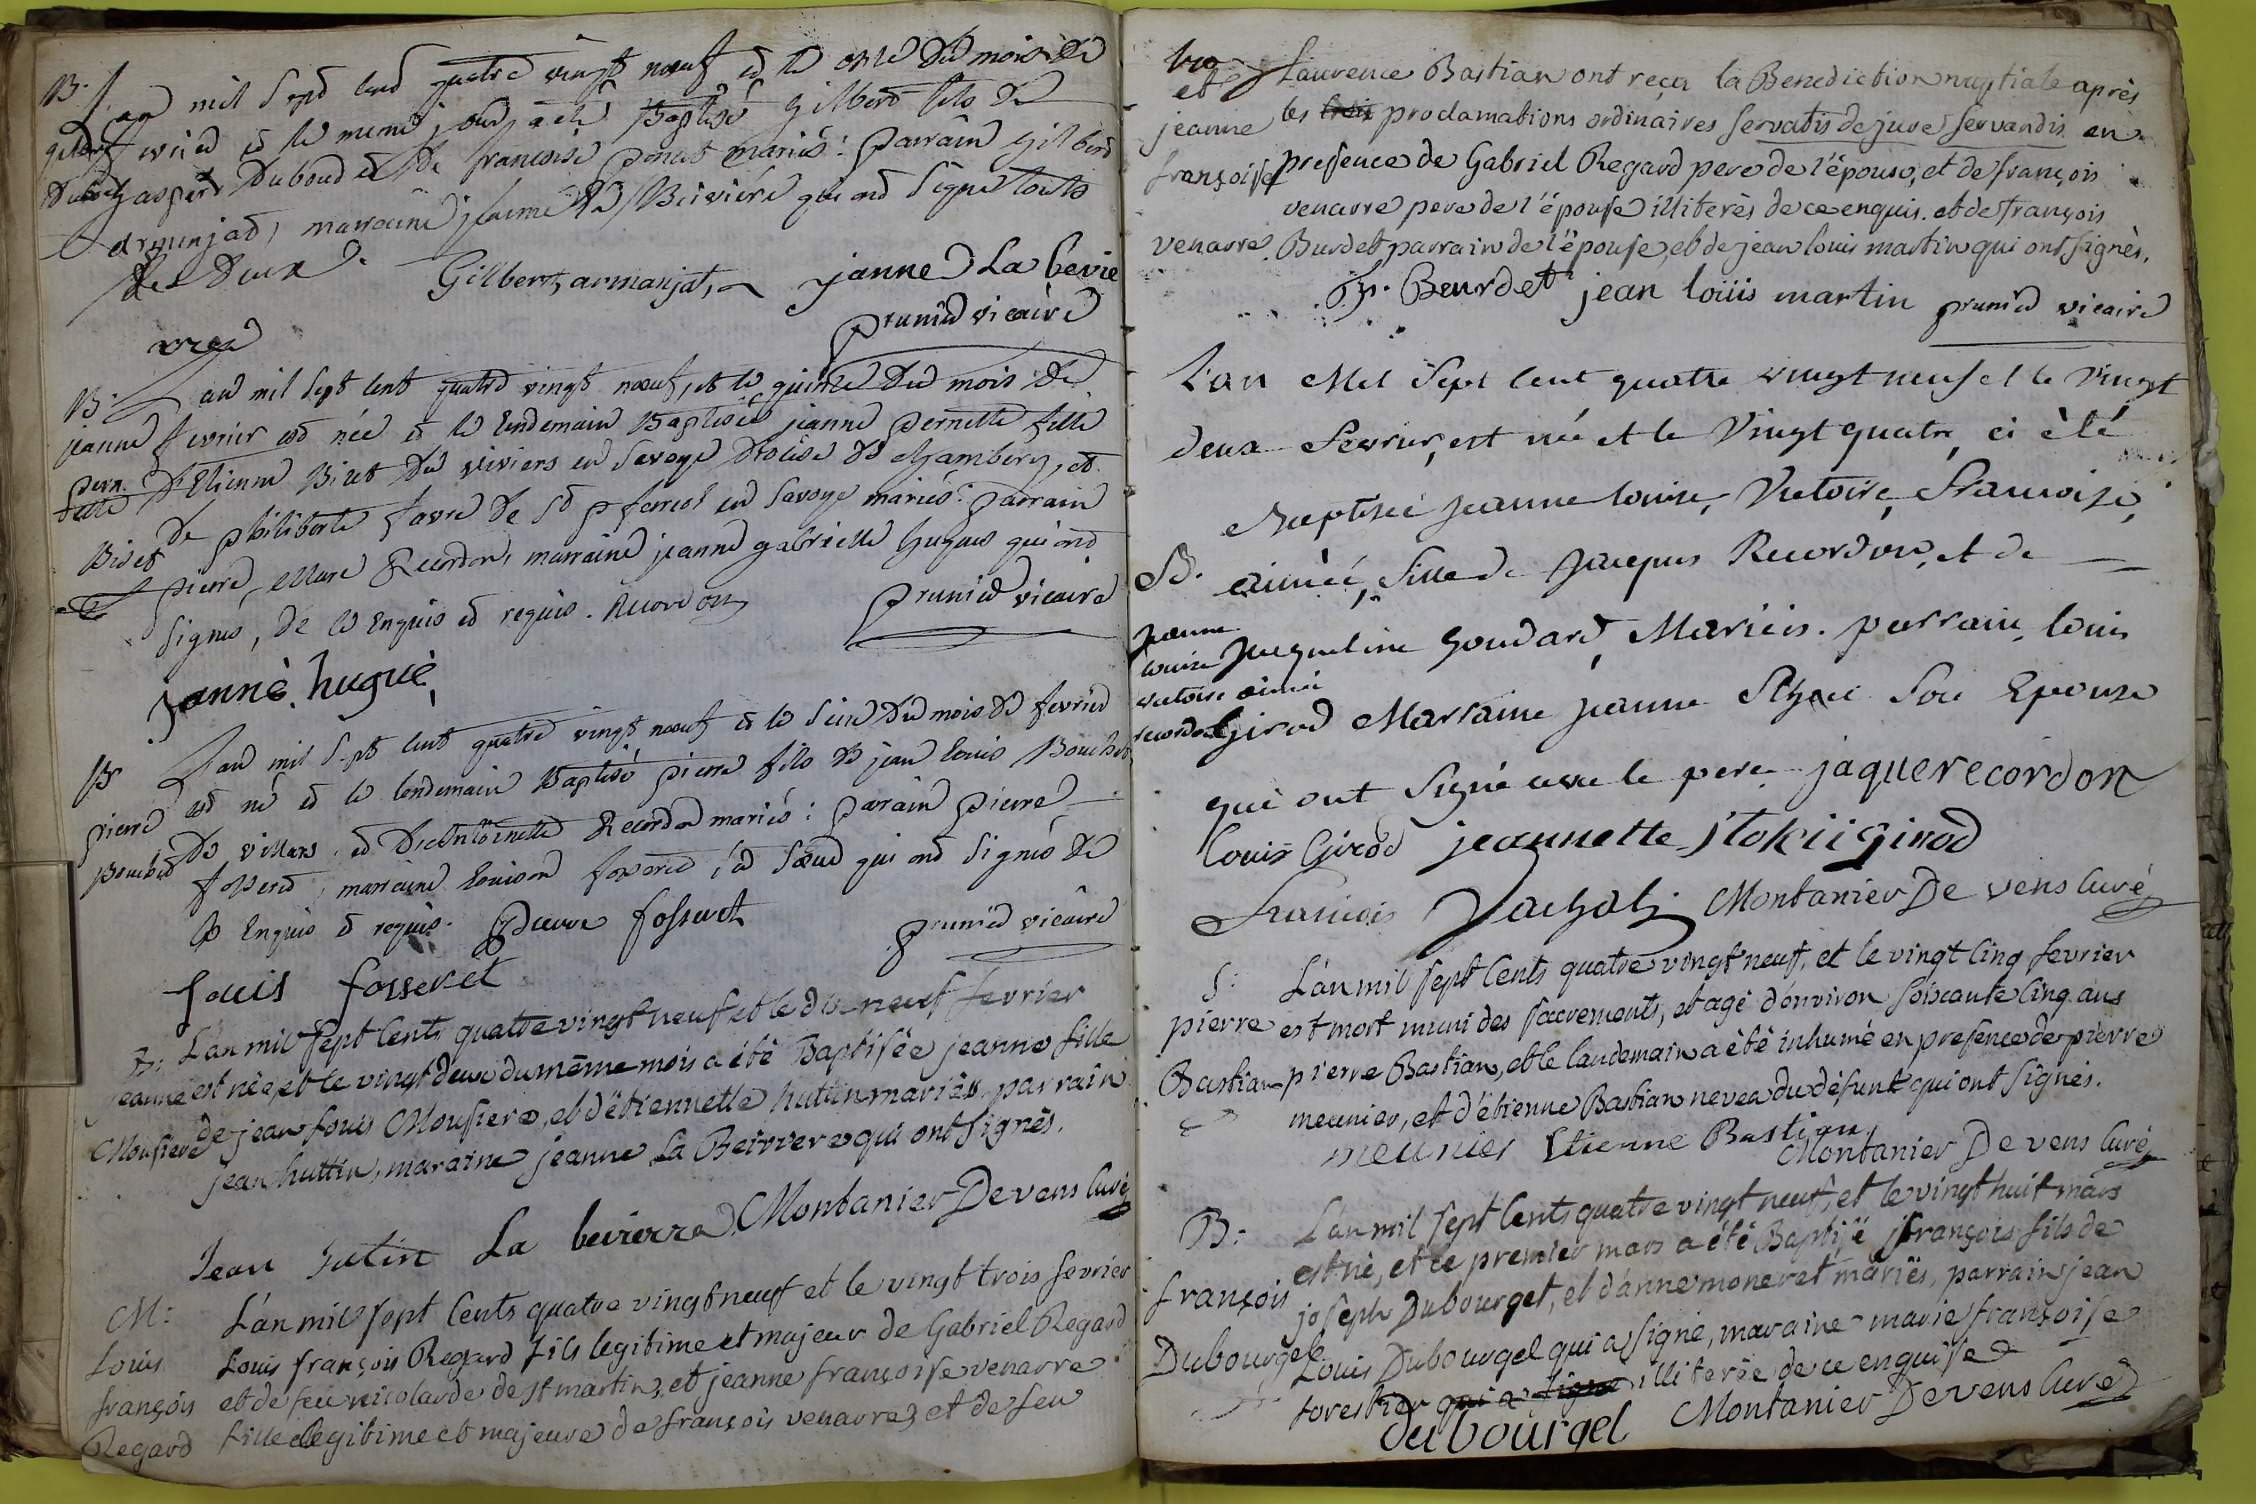 B: L'an mil sept cent quatre vingt neuf et le onze du mois de
gilbert fevrier et le meme jour a eté Baptisé gilbert fils de
Dubout gaspard Duboud et de francoise mariés: parrain gilbert
armenjat, marraine jeanne La Beiviére qui ont signé touts
les deux. Gilbert, armanjat, janne La bevie
vre
prunier vicaire
B: L'an mil sept cent quatre vingt neuf, et le quinze du mois de
jeanne fevrier est née et le lendemain Baptisée jeanne pernette fille
pern. D'Etienne Biset de viviers en Savoye diocise de chambery, et
ette de philiberte favre de St ferreol en Savoye mariés: parrain
Biset pierre Marc Recordon, marraine jeanne gabrielle hugues qui ont
signés, de ce Enquis et requis. Recordon prunier vicaire
janne hugue
B L'an mil sept cent quatre vingt neuf et le seize du mois de fevrier
pierre est né et le lendemain Baptisé pierre fils de jean louis Bouchet
Bouchet de villars et D'Antoinette Recordon mariés: parrain pierre
fosseret, marraine louison fosseret, sa sœur qui ont signés de
ce Enquis et requis. pierre fosseret prunier vicaire
Louis fosseret
B: L'an mil sept Cents quatre vingt neuf et le dix neuf fevrier
jeanne est née, et le vingt deux du même mois a été Baptisée jeanne fille
Mousiere de jean Louis Mousiere, et d'étiennette hutin mariés, parrain
jean huttin, maraine jeanne La Beirvere qui ont signés.
Jean hutin La bevierre Montanier De vens Curé
M: L'an mil sept Cents quatre vingt neuf et le vingt trois fevrier
Louis Louis françois Regard fils legitime et majeur de Gabriel Regard
françois et de feu nicolarde de St martin, et jeanne françoise venarre
Regard fille legitime et majeure de françois venarre, et de feu
et Laurence Bastian ont reçu la Benediction nuptiale après
jeanne les trois proclamations ordinaires servatis de jure servandis en
françoise presence de Gabriel Regard pere de l'épouse, et de françois
venarre pere de l'épouse illiterès de ce enquis. et de françois
venarre. Burdet parrain de l'épouse, et de jean louis martin qui ont signès.
fr. Beurdet jean loüis martin prunier vicaire
L'an Mil Sept Cent quatre vingt neuf et le Vingt
deux Fevrier, est née et le Vingt quatre, a été
Baptisée jeanne louise, Victoire, Francoise,
B. aimée, fille de Jacques Recordon, et de
jeanne
louise Jacqueline Goudard, Mariés. parrain, louis
victoire aimée
recordon Girod Marraine jeanne son Epouse
qui ont Signé avec le pere jaque recordon
Louis Girod jeannette Stokii Girod
Francois Montanier De vens Curé
S: L'an mil sept Cents quatre vingt neuf, et le vingt Cinq fevrier
pierre est mort muni des sacrements, et agé d'environ soixante Cinq ans
Bastian pierre Bastian, et le landemain a été inhumé en presence de pierre
meunier, et d'étienne Bastian neveu du défunt qui ont signés.
meunier Etienne Bastian
Montanier De vens Curé
B: L'an mil sept Cents quatre vingt neuf, et le vingt huit mars
est né, et le premier mars a été Baptisé françois fils de
françois joseph Dubourgel, et d'anne moneret mariés, parrain jean
Dubourgel Louis Dubourgel qui a signé, maraine marie françoise
forestier qui a signé illiterée de ce enquise
dubourgel Montanier De vens Curé